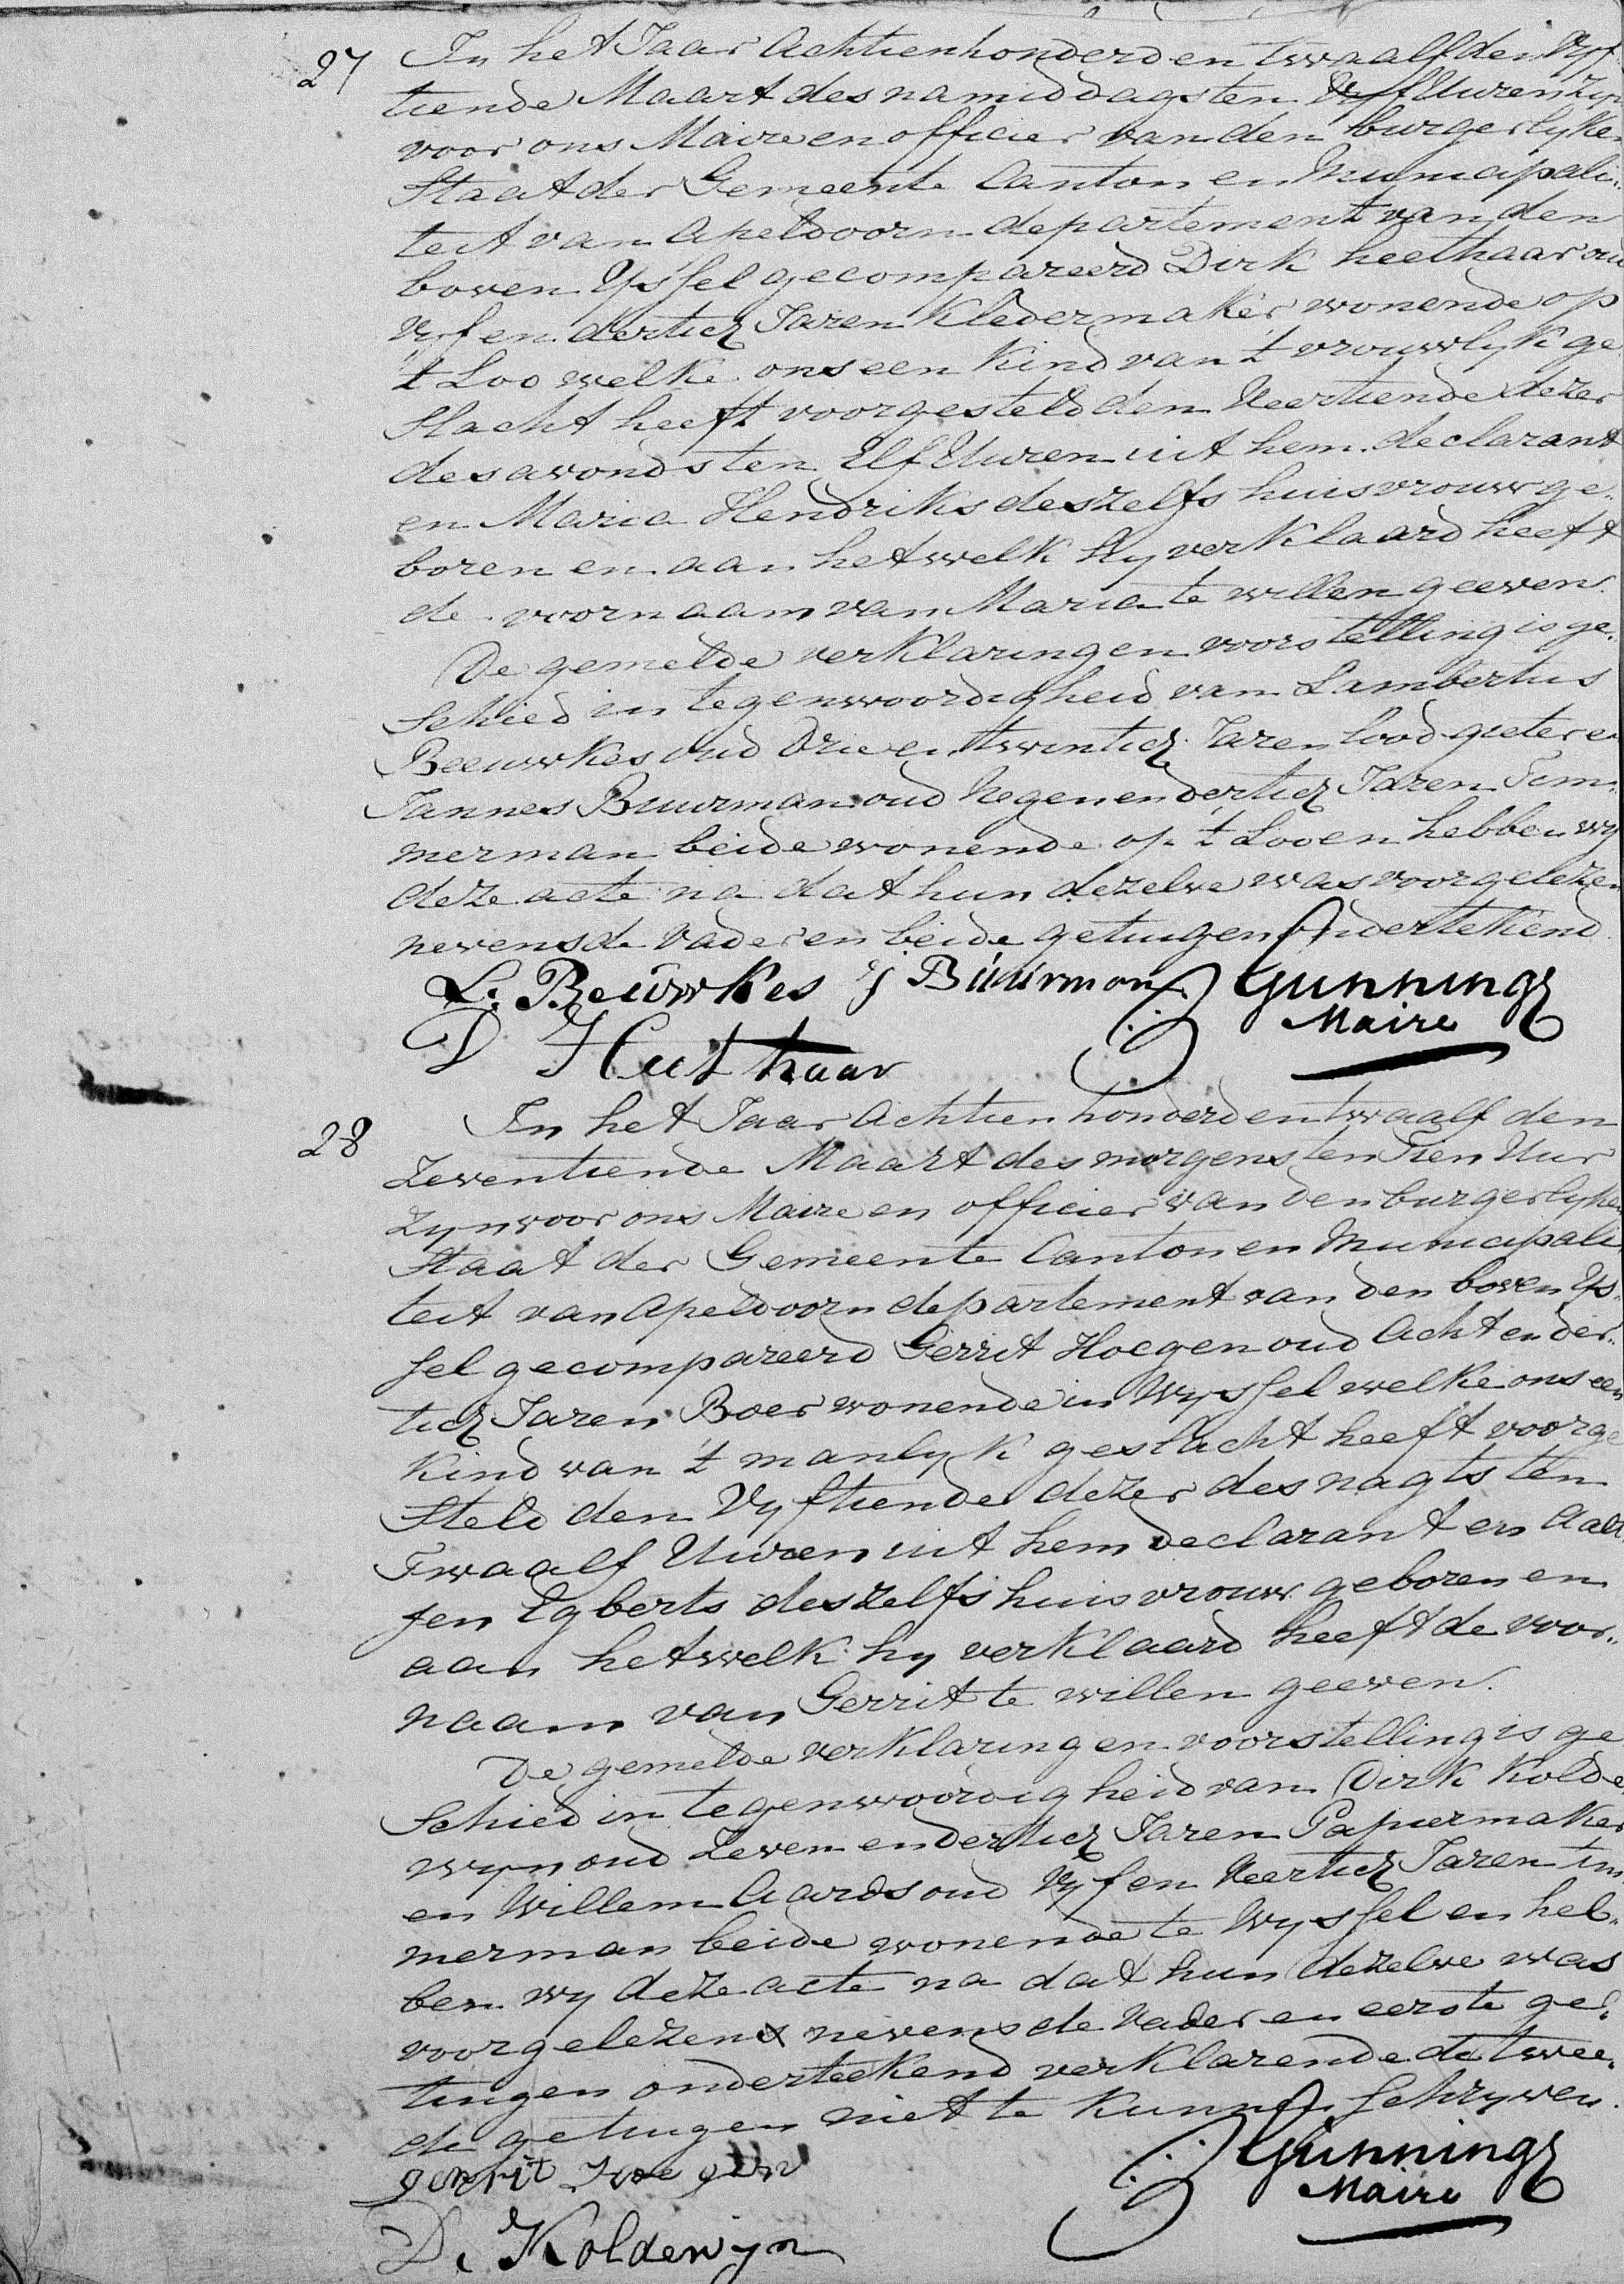 27 In het Jaar Achtienhonderd en twaalf den Vyf
tiende Maart des namiddags ten Vyf Uuren zyn
voor ons Maire en officier van den burgerlyken
Staat der Gemeente Canton en Municipali„
teit van Apeldoorn departement van den
boven Yssel gecompareerd Dirk heethaar oud
Vyf en dertich Jaren Kledermaker wonende op
't Loo welke ons een Kind van 't vrouwlyk ge
slacht heeft voorgesteld den Veertiende dezer
des avonds ten Elf Uuren uit hem declarant
en Maria Hendriks deszelfs huisvrouw ge„
boren en aan hetwelk hy verklaard heeft
de voornaam van Maria te willen geeven.
De gemelde verklaringen voorstelling is ge„
schied in tegenwoordigheid van Lambertus
Beeuwkes oud Drie en twintich Jaren loodgieter en
Jannes Buurman oud Negen en dertich Jaren Tim„
merman beide wonende op 't Loo en hebben wy
deze acte na dat hun dezelve was voorgelezen
nevens de vader en beide getuigen ondertekend
L. Beuwkes J Buurman Gunning
Maire
D Heethaar
28 In het Jaar Achtienhonderd en twaalf den
Zeventiende Maart des morgens ten Tien Uur
zyn voor ons Maire en officier van den burgerlyken
Staat der Gemeente Canton en Municipali
teit van Apeldoorn departement van den boven Ys„
sel gecompareerd Gerrit Hoegen oud Acht en der„
tich Jaren Boer wonende in Wyssel welke ons een
Kind van 't manlyk geslacht heeft voorge
steld den Vyftiende dezer des nagts ten
Twaalf Uuren uit hem declarant en Aalt
jen Egberts deszelfs huisvrouw geboren en
aan hetwelk hy verklaard heeft de voor„
naam van Gerrit te willen geeven.
De gemelde verklaringen voorstelling is ge
schied in tegenwoordigheid van Dirk Kolde
wyn oud Zeven en dertich Jaren Papiermaker
en Willem Aards oud Vyf en Veertich Jaren tim
merman beide wonende te Wyssel en heb„
ben wy deze acte na dat hun dezelve was
voorgelezen nevens de Vader en eerste ge„
tuigen onderteekend verklarende de twee„
de getuigen niet te kunnen schryven.
gerrit hoegen Gunning
Maire
D. Koldewijn